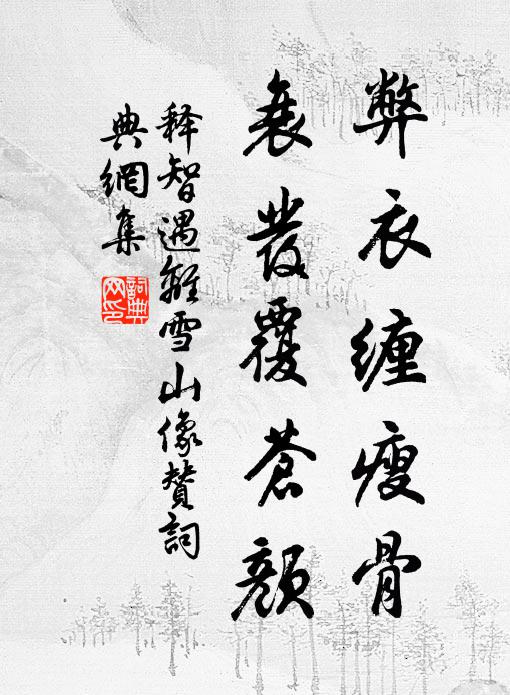 弊衣缠瘦骨
衰发覆苍颜
释智遇离雪山像赞词
典網集
詞典
网印